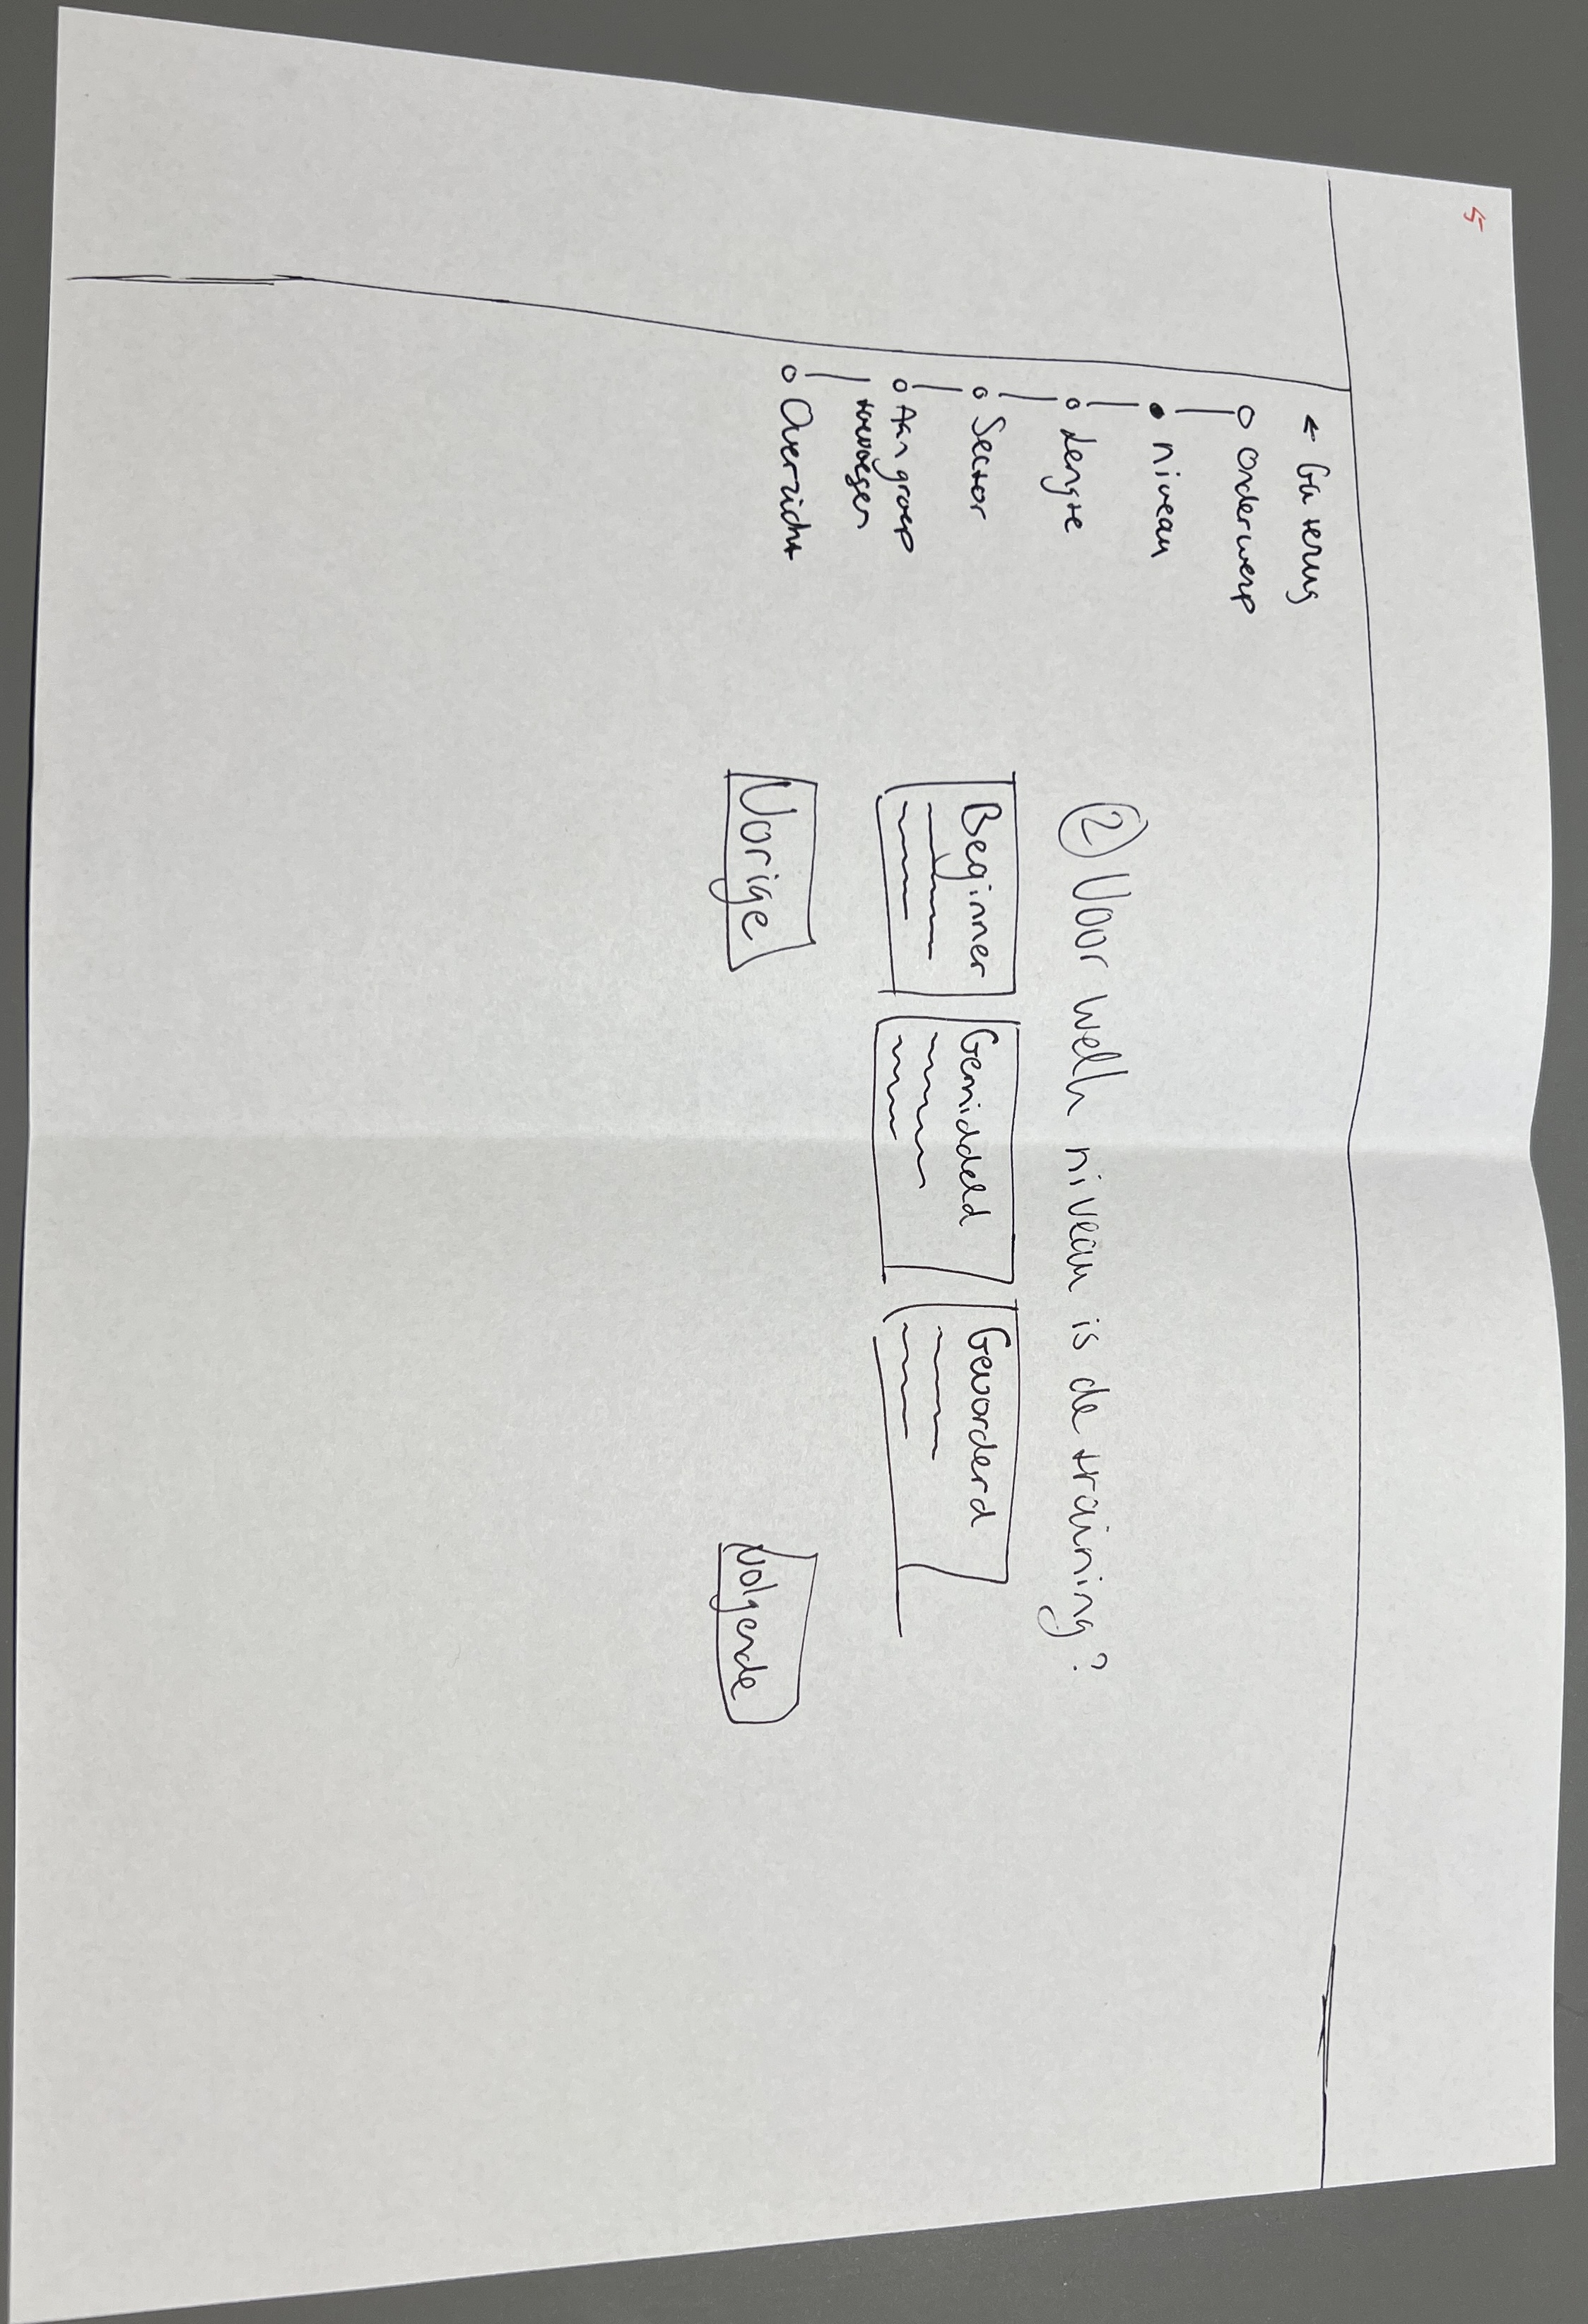 5
← Ga terug
Onderwerp
niveau
Lengte
Sector
Aan groep
toevoegen
Overzicht
② Voor welk niveau is de training?
Beginner
Gemiddeld
Gevorderd
Vorige
Volgende